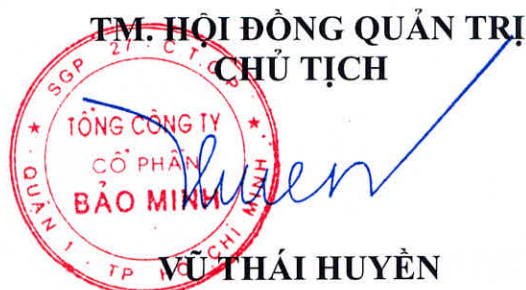 TM. HỘI ĐỒNG QUẢN TRỊ
CHỦ TỊCH
SGP 27 · C.T.C.P
TỔNG CÔNG TY
CỔ PHẦN
BẢO MINH
QUẬN 1 · TP HỒ CHÍ MINH
Huyen
VŨ THÁI HUYỀN